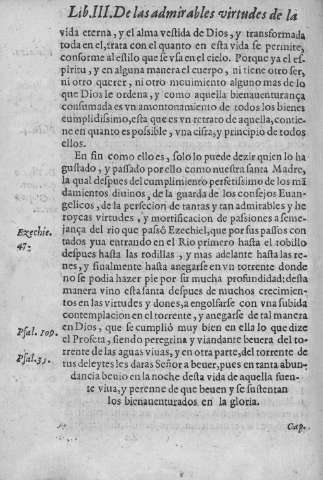 Lib. III. De las admirables virtudes de la
vida eterna, y el alma vestida de Dios, y transformada
toda en el, trata con el quanto en esta vida se permite,
conforme al estilo que se vsa en el cielo. Porque ya el es-
piritu, y en alguna manera el cuerpo, ni tiene otro ser,
ni otro querer, ni otro mouimiento alguno mas de lo
que Dios le ordena, y como aquella bienauenturança
consumada es vn amontonamiento de todos los bienes
cumplidissimo, esta que es vn retrato de aquella, contie-
ne en quanto es possible, vna cifra, y principio de todos
ellos.
En fin como ello es, solo lo puede dezir quien lo ha
gustado, y passado por ello como nuestra santa Madre,
la qual despues del cumplimiento perfetissimo de los mã
damientos diuinos, de la guarda de los consejos Euan-
gelicos, de la perfecion de tantas y tan admirables y he
roycas virtudes, y mortificacion de passiones a seme-
jança del rio que passó Ezechiel, que por sus passos con
Ezechie.
47.
tados yua entrando en el Rio primero hasta el tobillo
despues hasta las rodillas, y mas adelante hasta las re-
nes, y finalmente hasta anegarse en vn torrente donde
no se podia hazer pie por su mucha profundidad: desta
manera vino esta santa despues de muchos crecimien-
tos en las virtudes y dones, a engolfarse con vna subida
contemplacion en el torrente, y anegarse de tal manera
en Dios, que se cumplió muy bien en ella lo que dize
Psal. 109.
el Profeta, siendo peregrina y viandante beuera del to-
rrente de las aguas viuas, y en otra parte, del torrente de
Psal. 35.
tus deleytes les daras Señor a beuer, pues en tanta abun-
dancia beuio en la noche desta vida de aquella fuen-
te viua, y perenne de que beuen y se sustentan
los bienauenturados en la gloria.
Cap.